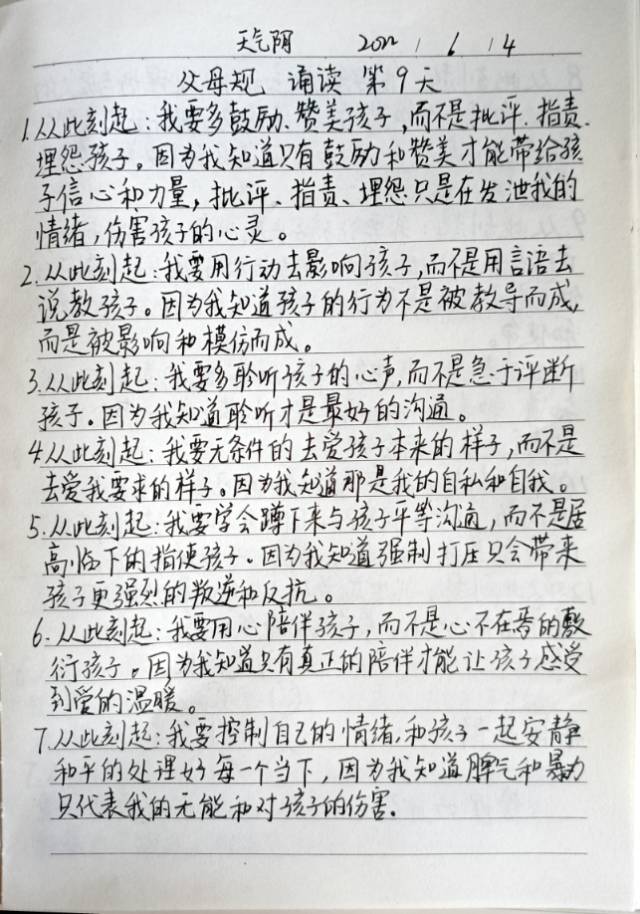 天气阴 2022 1 6 1 4
父母规 诵读 第9天
1.从此刻起:我要多鼓励、赞美孩子,而不是批评、指责、
埋怨孩子。因为我知道只有鼓励和赞美才能带给孩
子信心和力量,批评、指责、埋怨只是在发泄我的
情绪,伤害孩子的心灵。
2.从此刻起:我要用行动去影响孩子,而不是用言语去
说教孩子。因为我知道孩子的行为不是被教导而成,
而是被影响和模仿而成。
3.从此刻起:我要多聆听孩子的心声,而不是急于评断
孩子。因为我知道聆听才是最好的沟通。
4从此刻起:我要无条件的去爱孩子本来的样子,而不是
去爱我要求的样子。因为我知道那是我的自私和自我。
5.从此刻起:我要学会蹲下来与孩子平等沟通,而不是居
高临下的指使孩子。因为我知道强制打压只会带来
孩子更强烈的叛逆和反抗。
6.从此刻起:我要用心陪伴孩子,而不是心不在焉的敷
衍孩子。因为我知道只有真正的陪伴才能让孩子感受
到爱的温暖。
7.从此刻起:我要控制自己的情绪,和孩子一起安静
和平的处理好每一个当下,因为我知道脾气和暴力
只代表我的无能和对孩子的伤害.